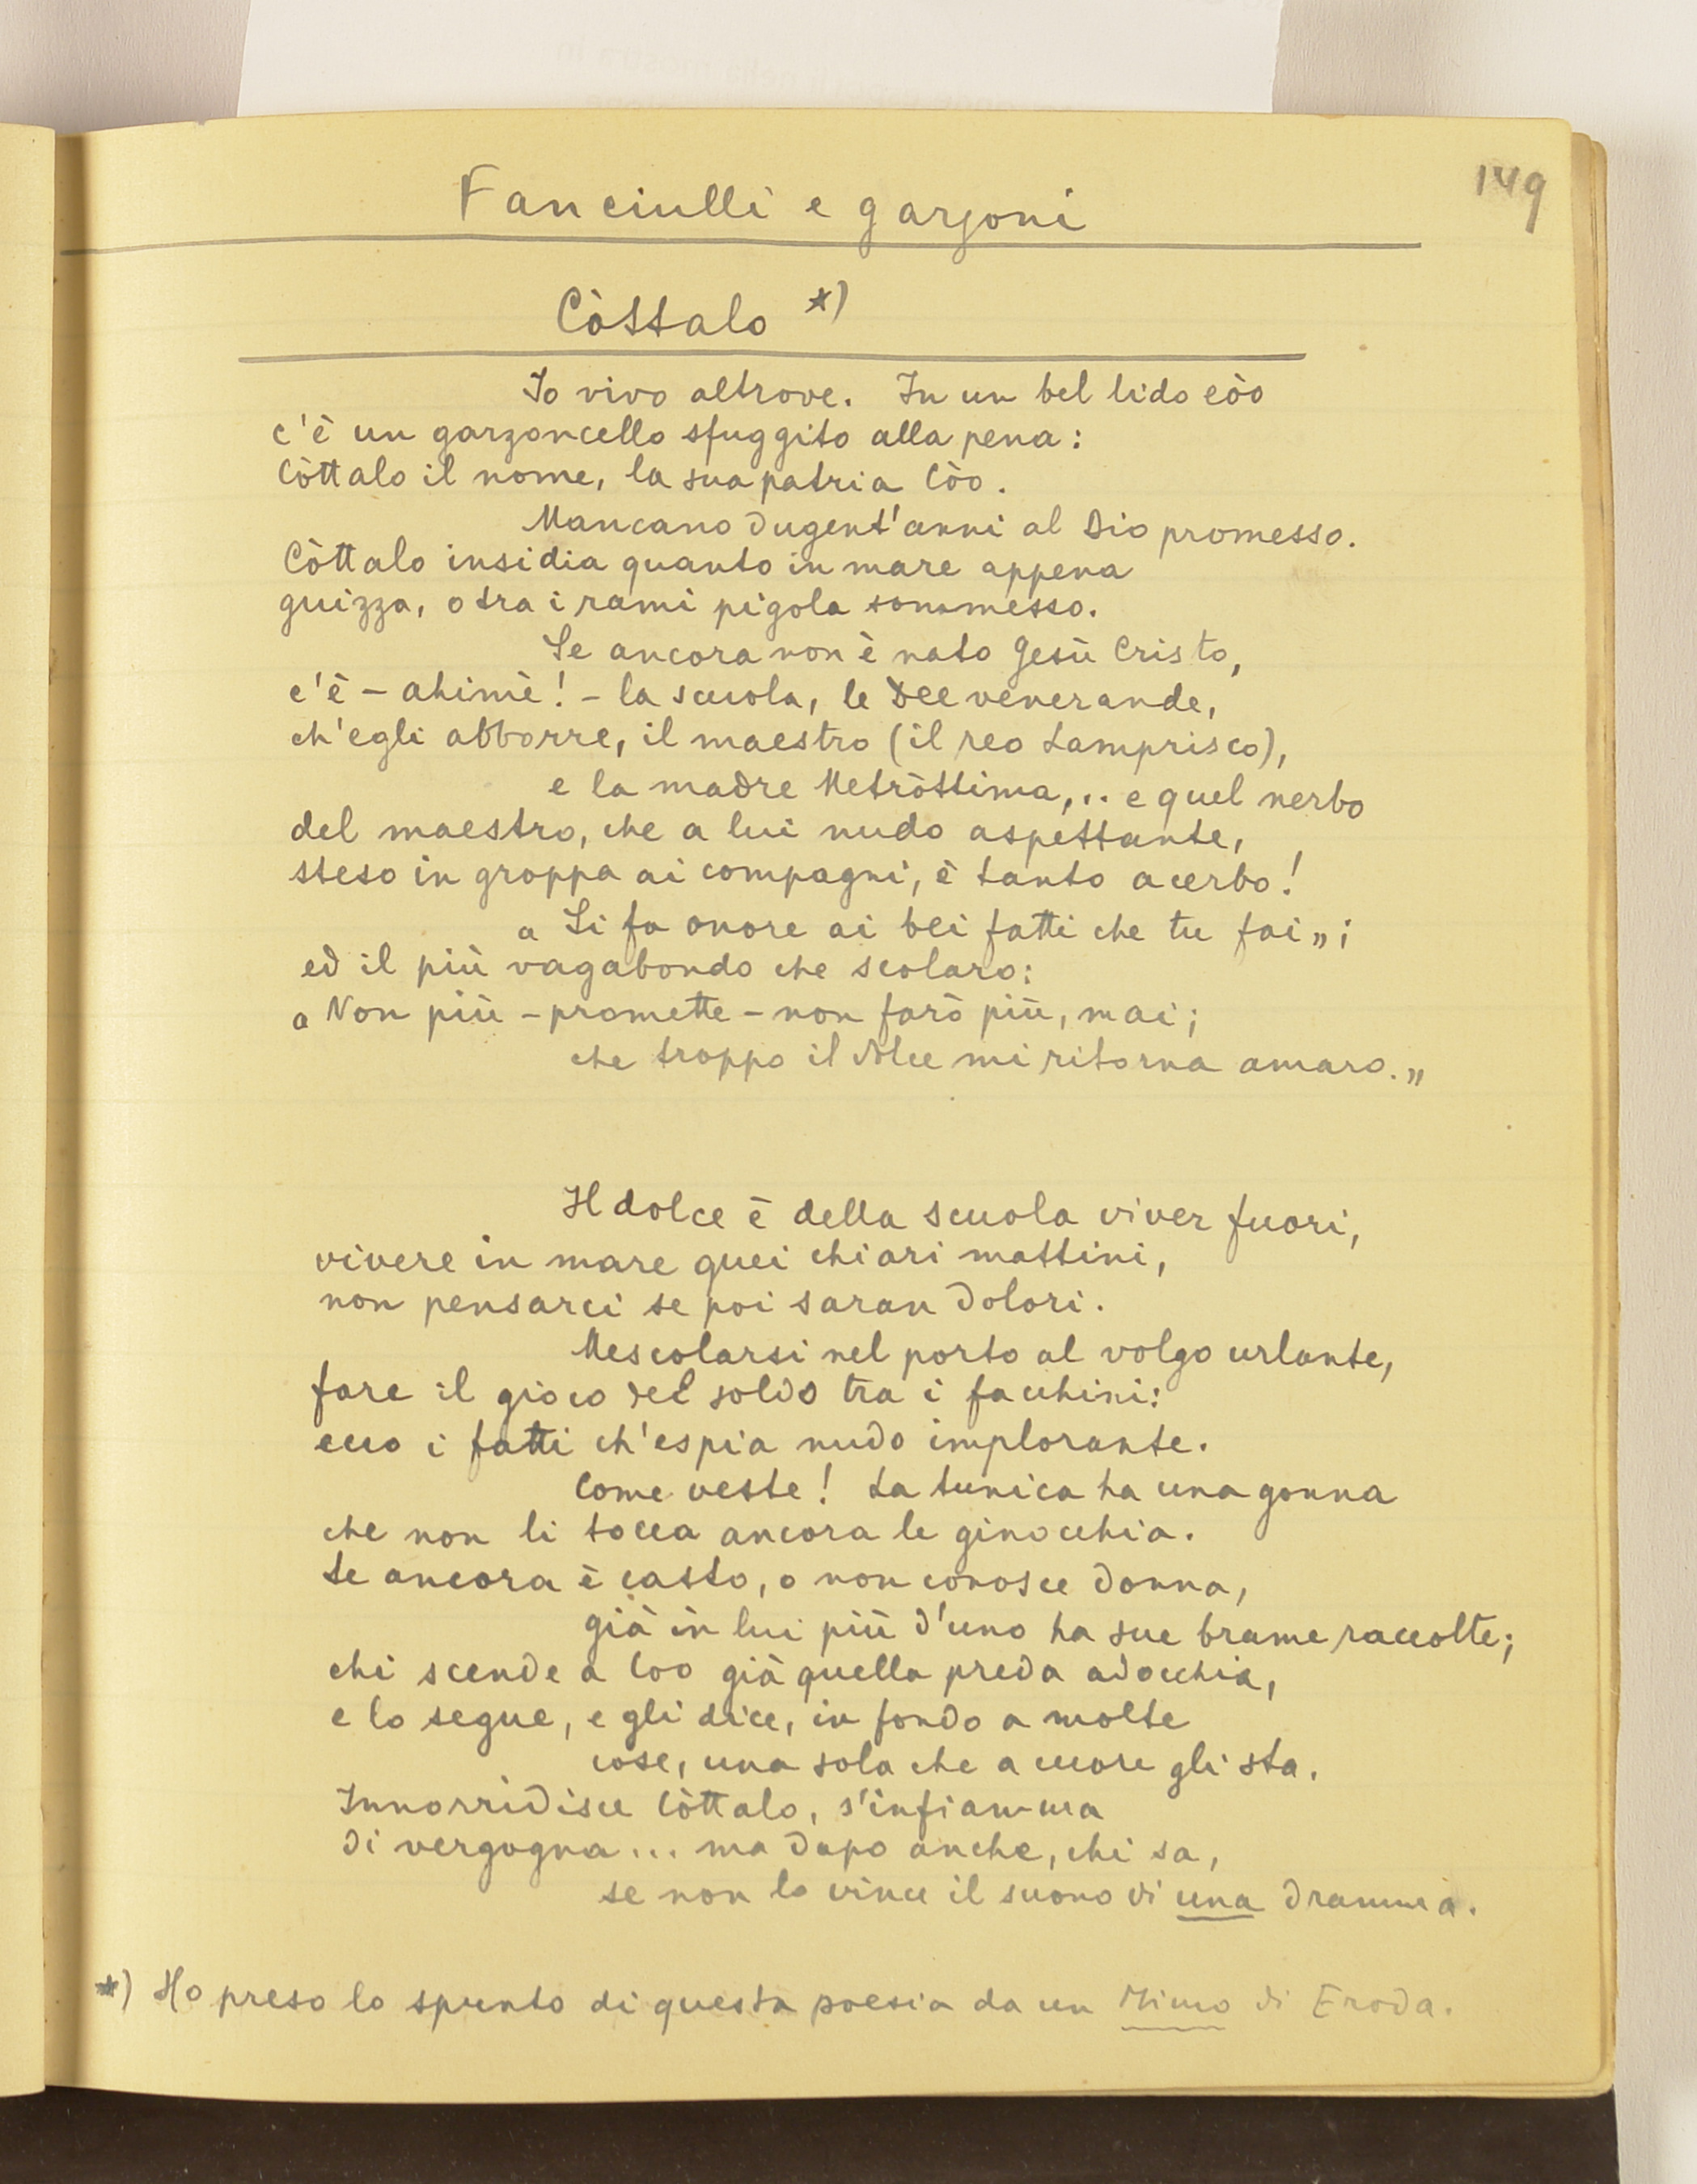 149
Fanciulli e garzoni
Còttalo *)
Io vivo altrove. In un bel lido eòo
c'è un garzoncello sfuggito alla pena:
Còttalo il nome, la sua patria Còo.
Mancano dugent'anni al Dio promesso.
Còttalo insidia quanto in mare appena
guizza, o tra i rami pigola sommesso.
Se ancora non è nato Gesù Cristo,
c'è - ahimè! - la scuola, le Dee venerande,
ch'egli abborre, il maestro (il reo Lamprisco),
e la madre Metròttima,.. e quel nerbo
del maestro, che a lui nudo aspettante,
steso in groppa ai compagni, è tanto acerbo!
« Si fa onore ai bei fatti che tu fai „;
ed il più vagabondo che scolaro:
« Non più - promette - non farò più, mai;
che troppo il dolce mi ritorna amaro. „
Il dolce è della scuola viver fuori,
vivere in mare quei chiari mattini,
non pensarci se poi saran dolori.
Mescolarsi nel porto al volgo urlante,
fare il gioco del soldo tra i facchini:
ecco i fatti ch'espia nudo implorante.
Come veste! La tunica ha una gonna
che non li tocca ancora le ginocchia.
Se ancora è casto, o non conosce donna,
già in lui più d'uno ha sue brame raccolte;
chi scende a Coo già quella preda adocchia,
e lo segue, e gli dice, in fondo a molte
cose, una sola che a cuore gli sta.
Innorridisce Còttalo, s'infiamma
di vergogna... ma dopo anche, chi sa,
se non lo vince il suono di una dramma.
*) Ho preso lo spunto di questa poesia da un Mimo di Eroda.